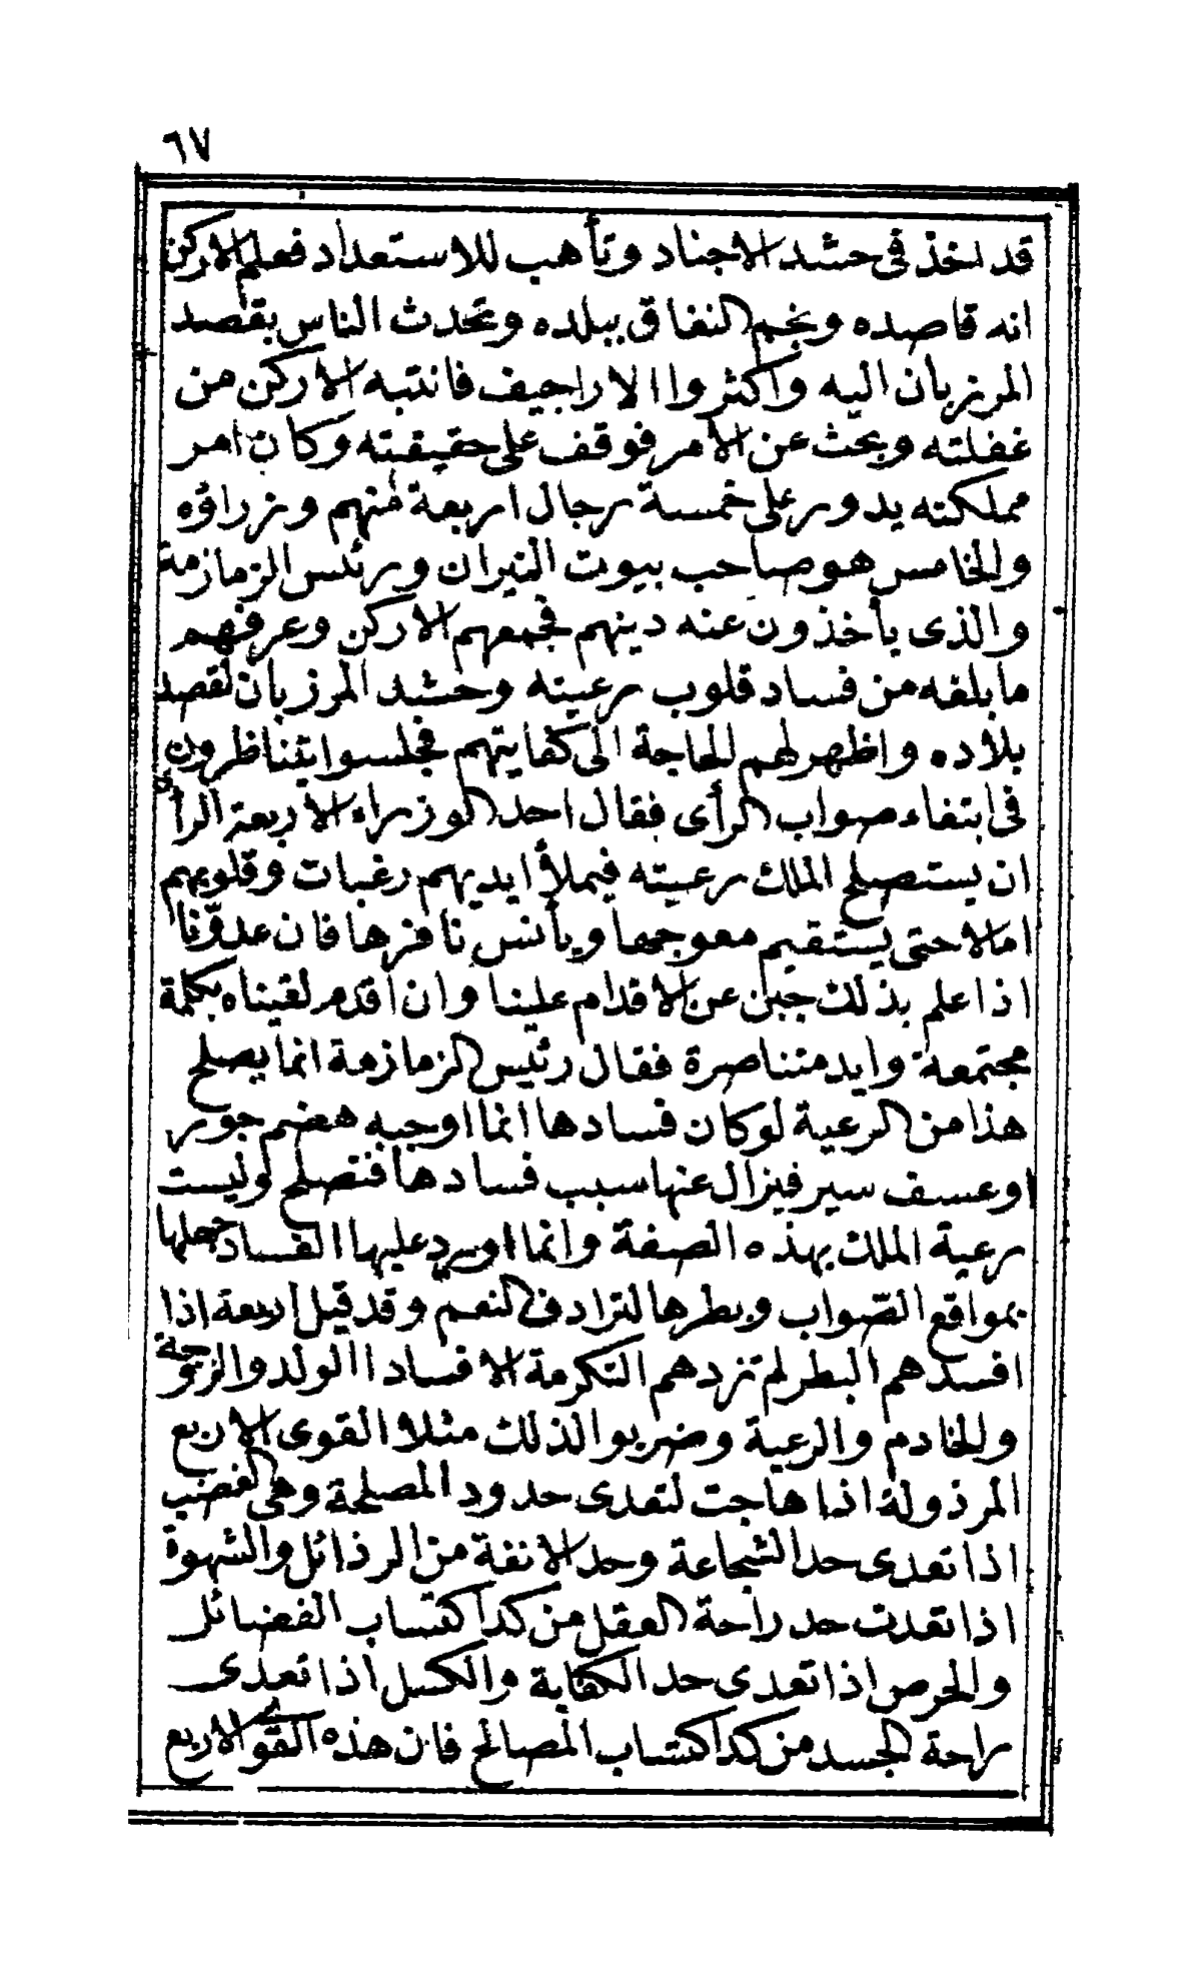 ٦٧
قد اخذ فى حشد الاجناد وتأهب للاستعداد فعلم الاركن
انه قاصده ونجم النفاق ببلده وتحدث الناس بقصد
المرزبان اليه واكثروا الاراجيف فانتبه الاركن من
غفلته وبحث عن الأمر فوقف على حقيقته وكان امر
مملكته يدور على خمسة رجال اربعة منهم وزراؤه
والخامس هو صاحب بيوت النيران ورئس الزمازمة
والذى يأخذون عنه دينهم فجمعهم الاركن وعرفهم
ما بلغه من فساد قلوب رعيته وحشد المرزبان لقصد
بلاده واظهر لهم الحاجة الى كفايتهم فجلسوا يتناظرون
فى ابتغاء صواب الرأى فقال احد الوزراء الاربعة الرأى
ان يستصلح الملك رعيته فيملأ ايديهم رغبات وقلوبهم
امالا حتى يستقيم معوجها ويأنس نافرها فان عدوّنا
اذا علم بذلك جبن عن الاقدام علينا وان اقدم لقيناه بكلمة
مجتمعة وايد متناصرة فقال رئيس الزمازمة انما يصلح
هذا من الرعية لو كان فسادها انما اوجبه هضم جور
او عسف سير فيزال عنها سبب فسادها فتصلح وليست
رعية الملك بهذه الصفة وانما اورد عليها الفساد جهلها
بمواقع الصّواب وبطرها لترادف النعم وقد قيل اربعة اذا
افسدهم البطر لم تزدهم التكرمة الا فسادا الولد والزوجة
والخادم والرعية وضربوا لذلك مثلا القوى الاربع
المرذولة اذا هاجت لتعدى حدود المصلحة وهى الغضب
اذا تعدى حد الشجاعة وحد الانفة من الرذائل والشهوة
اذا تعدت حد راحة العقل من كد اكتساب الفضائل
والحرص اذا تعدى حد الكفاية والكسل اذا تعدى
راحة الجسد من كد اكتساب المصالح فان هذه القوى الاربع